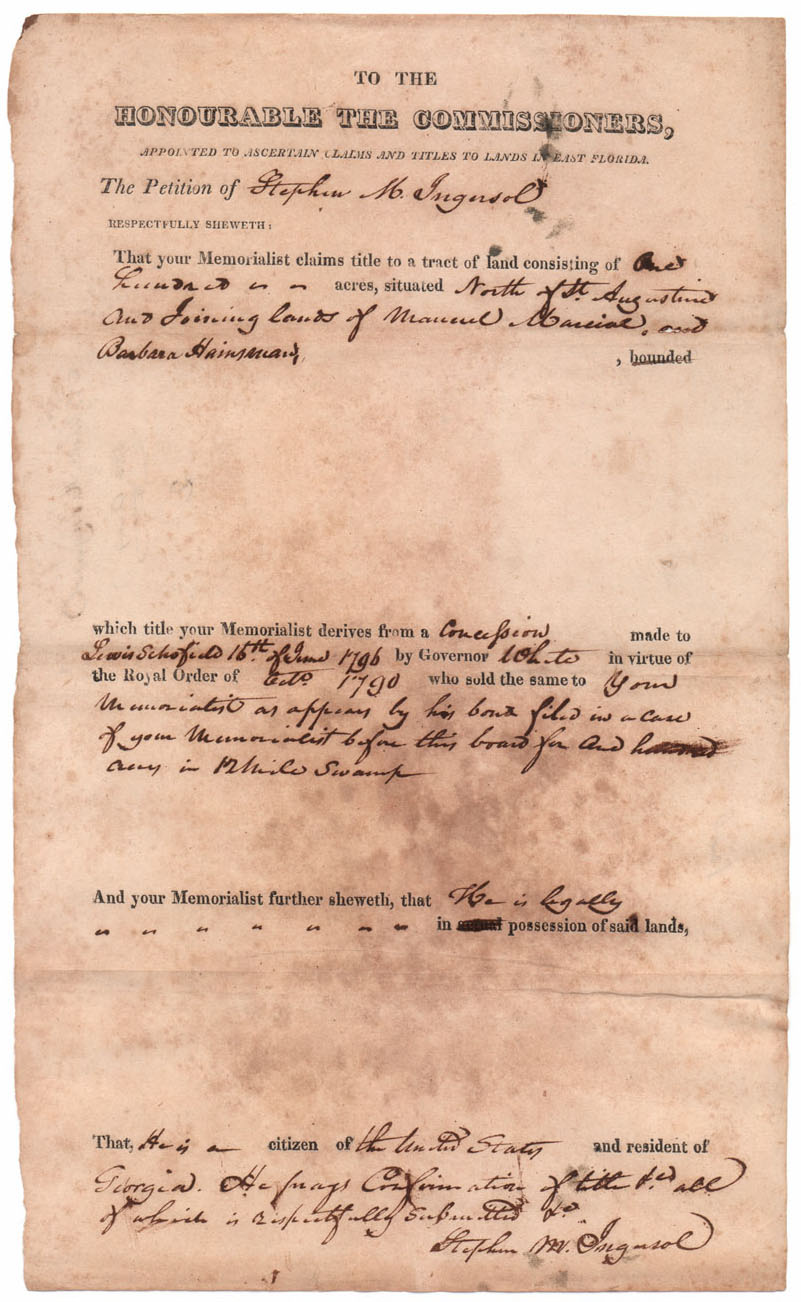 TO THE
HONOURABLE THE COMMISSIONERS,
APPOINTED TO ASCERTAIN CLAIMS AND TITLES TO LANDS IN EAST FLORIDA.
The Petition of Stephen M. Ingersol
RESPECTFULLY SHEWETH:
That your Memorialist claims title to a tract of land consisting of One
Hundred " " acres, situated North of St. Augustine
and Joining lands of Manuel Marcial, and
Barbara Hainsman, , bounded
which title your Memorialist derives from a Concession made to
Lewis Schofield 16th of June 1796 by Governor White in virtue of
the Royal Order of Octo. 1790 who sold the same to Your
Memorialist as appears by his bond filed in a case
of your Memorialist before this board for
acres in 12 Mile Swamp
And your Memorialist further sheweth, that He is legally
" " " " " " " in actual possession of said lands,
That, He is a citizen of the United States and resident of
Georgia. He prays Confirmation of title &c all
of which is respectfully Submitted &c
Stephen M. Ingersol